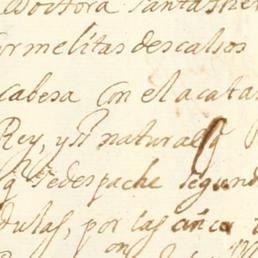 Doctora Santa
Carmelitas descalsos
cabesa con el acata
Rey, y Sr natural q
q se despache segund
dulas, por las
on